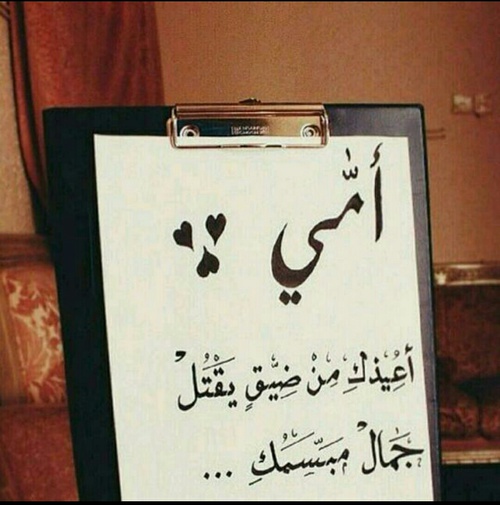 أمّي
أعِيذكِ مِنْ ضِيّقٍ يقْتُلْ
جَمالْ مبَسّمَكِ ...